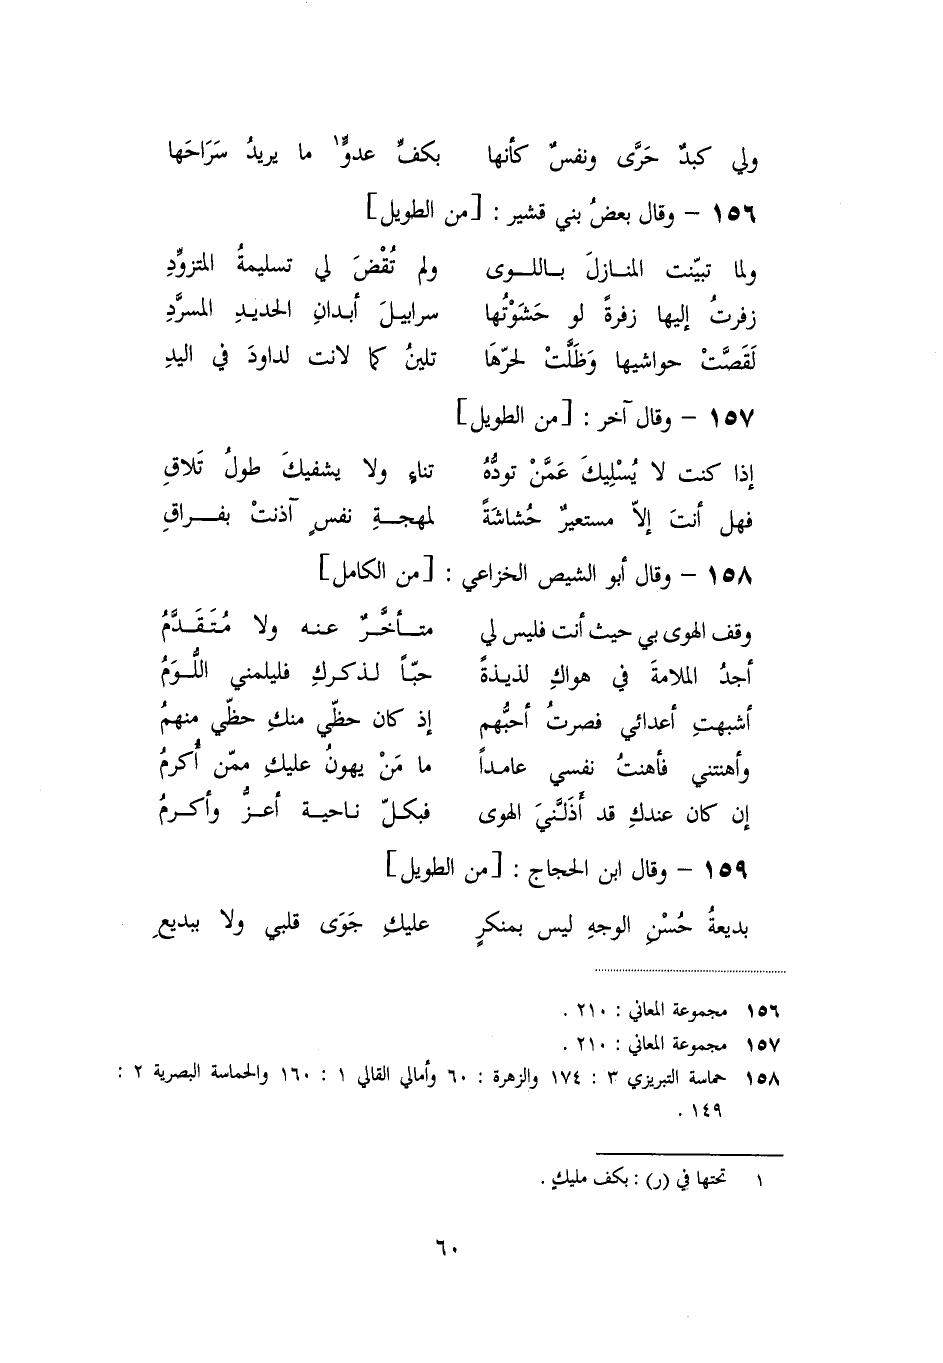 ولي كبدٌ حَرَّى ونفسٌ كأنها بكفِّ عدوٍّ١ ما يريدُ سَرَاحَها
١٥٦ – وقال بعضُ بني قشير : [من الطويل]
ولما تبيّنت المنازلَ باللوى ولم تُقْضَ لي تسليمةُ المتزوِّدِ
زفرتُ إليها زفرةً لو حَشَوْتُها سرابيلَ أبدانِ الحديدِ المسرَّدِ
لَقَصَّتْ حواشيها وَظَلَّتْ لحرّهَا تلينُ كما لانت لداودَ في اليدِ
١٥٧ – وقال آخر : [من الطويل]
إذا كنت لا يُسْلِيكَ عَمَّنْ تودُّهُ تناءٍ ولا يشفيكَ طولُ تَلَاقِ
فهل أنتَ إلاّ مستعيرٌ حُشاشَةً لمهجةِ نفسٍ آذنتْ بفراقِ
١٥٨ – وقال أبو الشيص الخزاعي : [من الكامل]
وقف الهوى بي حيث أنت فليس لي متأخَّرٌ عنه ولا مُتَقَدَّمُ
أجدُ الملامةَ في هواكِ لذيذةً حبّاً لذكركِ فليلمني اللُّوَمُ
أشبهتِ أعدائي فصرتُ أحبُّهم إذ كان حظّي منكِ حظّي منهمُ
وأهنتني فأهنتُ نفسي عامداً ما مَنْ يهونُ عليكِ ممّن أُكرمُ
إن كان عندكِ قد أَذَلَّنيَ الهوى فبكلّ ناحية أعزُّ وأكرمُ
١٥٩ – وقال ابن الحجاج : [من الطويل]
بديعةُ حُسْنِ الوجهِ ليس بمنكرٍ عليكِ جَوَى قلبي ولا ببديعِ
١٥٦ مجموعة المعاني : ٢١٠ .
١٥٧ مجموعة المعاني : ٢١٠ .
١٥٨ حماسة التبريزي ٣ : ١٧٤ والزهرة : ٦٠ وأمالي القالي ١ : ١٦٠ والحماسة البصرية ٢ :
١٤٩ .
١ تحتها في (ر) : بكف مليكٍ .
٦٠